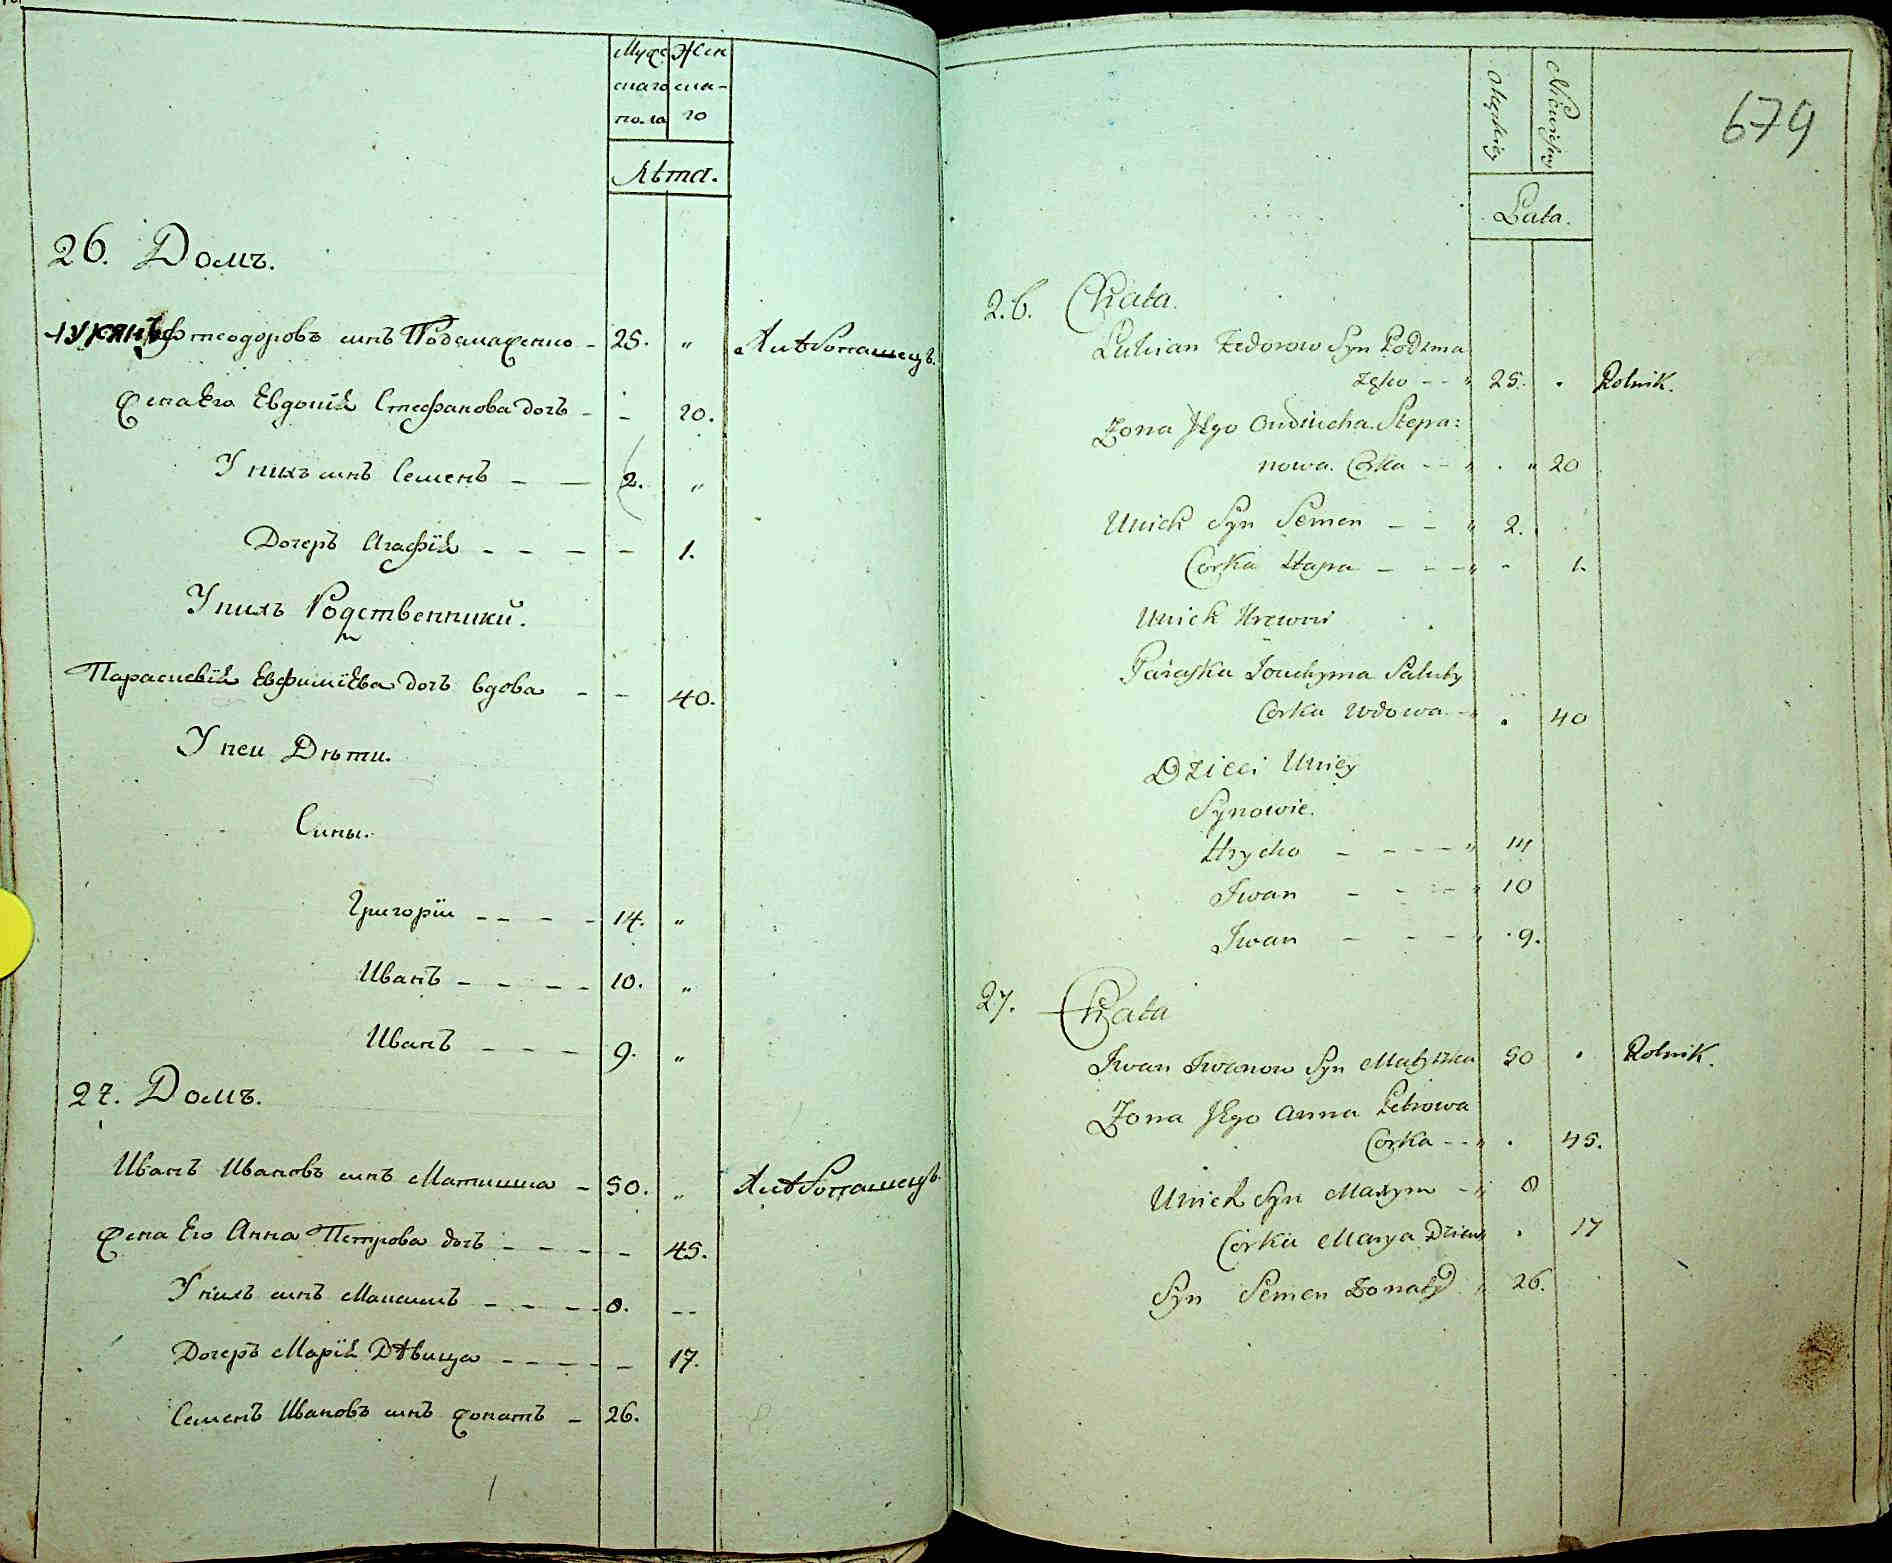 Мужескаго пола
Женскаго
Лѣта.
26. Домъ.
Лукянъ Фтеодоровъ синъ Подзмаженко - 25. "
Хлѣбопашецъ.
Жена Его Евдокія Стефанова дочъ - - 20.
У нихъ синъ Семенъ - - 2. "
Дочеръ Агафія - - - - 1.
У нихъ Родственники.
Параскевія Евфиміева дочъ вдова - - 40.
У неи Дѣти.
Сины.
Григоріи - - - - 14. "
Иванъ - - - - 10. "
Иванъ - - - 9. "
27. Домъ.
Иванъ Ивановъ синъ Матишка - 50. "
Хлѣбопашецъ.
Жена Его Анна Петрова дочъ - - - - 45.
У нихъ синъ Максимъ - - - - 8. - -
Дочеръ Марія Дѣвица - - - - - 17.
Семенъ Ивановъ синъ жонатъ - 26.
679
Męskiey
Niewiesciey
Lata.
26. Chata.
Lukian Fedorow Syn Podzma
żęko - - " 25. . Rolnik.
Żona Jego Oudiucha Stepa:
nowa Corka - - " . " 20
Unich Syn Semen - - " 2.
Corka Hapa - - - " - 1.
Unich Krewni
Paraska Jouchyma
Corka Wdowa - " . 40
Dzieci Uniey
Synowie.
Hrycko - - - - " 14
Iwan - - - - " 10
Iwan - - - " 9.
27. Chata
Iwan Iwanow Syn Matyszka 50 . Rolnik.
Żona Jego Anna Petrowa
Corka - - " . 45.
Unich Syn Maxym - " 8
Corka Marya Dziew . 17
Syn Semen Żonaty " 26.